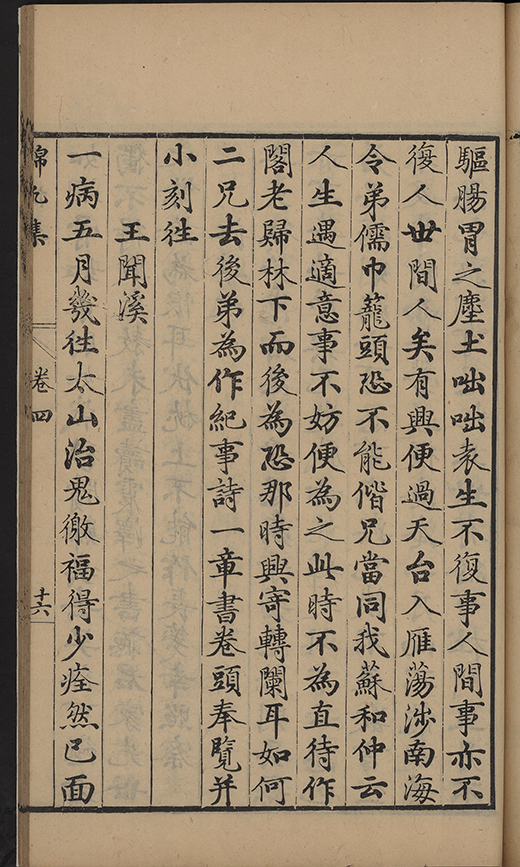 驅腸胃之塵土咄咄袁生不復事人間事亦不
復人世間人矣有興便過天台入雁蕩涉南海
令弟儒巾籠頭恐不能偕兄當同我蘇和仲云
人生遇適意事不妨便為之此時不為直待作
閣老歸林下而後為恐那時興寄轉闌耳如何
二兄去後弟為作紀事詩一章書卷頭奉覽并
小刻徃
王聞溪
一病五月幾徃太山治鬼徼福得少痊然已面
錦凢集
卷四
十六